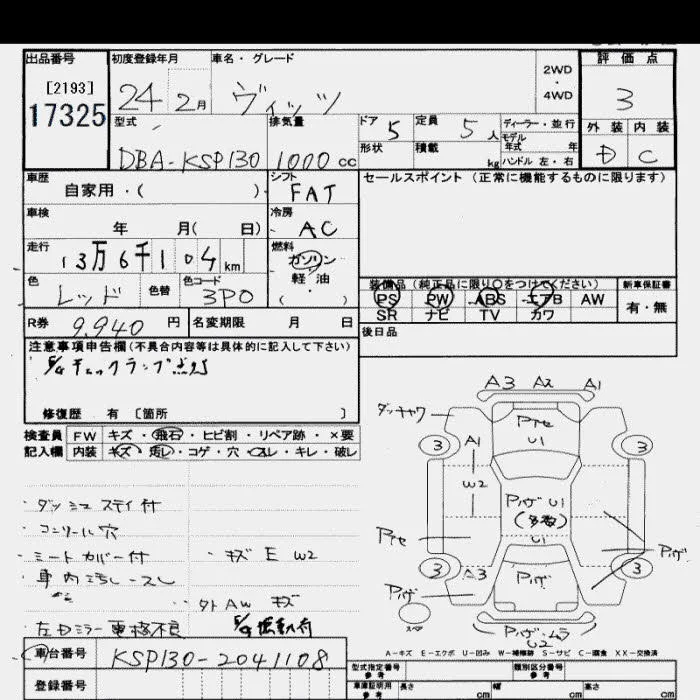 出品番号 初度登録年月 車名・グレード 評価点
[2193] 17325 24 2月 ヴィッツ 2WD・4WD 3
型式 排気量 ドア 5 定員 5人 ディーラー・並行 外装 内装
DBA-KSP130 1000cc 形状 積載 kg モデル年式 年 D C
ハンドル 左・右
車歴 シフト セールスポイント(正常に機能するものに限ります)
自家用・( ) FAT
車検 冷房
年 月( 日) AC
走行 燃料
13万6千104km ガソリン
色 色替 色コード 軽油・
レッド 3P0 ( ) 装備品(純正品に限り〇をつけてください) 新車保証書
PS PW ABS エアB AW 有・無
R券 9,940円 名変期限 月 日 SR ナビ TV カワ
注意事項申告欄(不具合内容等は具体的に記入して下さい) 後日品
チェックランプ
修復歴 有 〔箇所 〕
A3 A2 A1
検査員 FW キズ・飛石・ヒビ割・リペア跡・×要
記入欄 内装 キズ・汚レ・コゲ・穴・コスレ・キレ・破レ
ダッチャワ
3 3
A1
U1
W2
U1
(多数)
U1
3 3
A3
スペア
U2
・ダッシュ ステイ付
・コンソール穴
・シートカバー付 ・キズ E W2
・車内汚レ・スレ
・外AW キズ
・左右ミラー
A-キズ E-エクボ U-凹み W-補修跡 S-サビ C-腐食 XX-交換済
車台番号 KSP130-2041108
型式指定番号 参考 類別区分番号 参考
登録番号 車庫証明用 参考 長さ cm 幅 cm 高さ cm